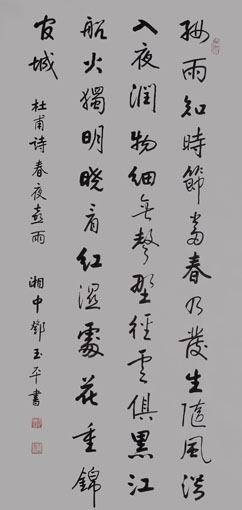 好雨知時節當春乃發生隨風潛
入夜潤物細無聲野徑雲俱黑江
船火獨明曉看紅濕處花重錦
官城
杜甫詩春夜喜雨 湘中鄧玉平書